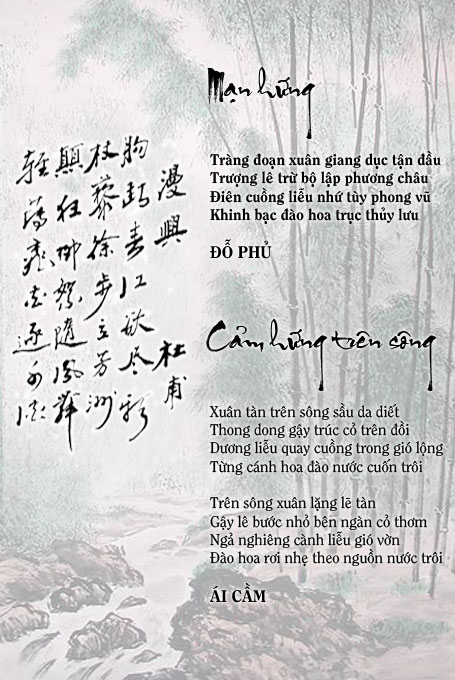 漫興
杜甫
腸斷春江欲尽頭
杖藜徐步立芳洲
顛狂柳絮隨風舞
輕薄桃花逐水流
Mạn hứng
Tràng đoạn xuân giang dục tận đầu
Trượng lê trừ bộ lập phương châu
Điên cuồng liễu nhứ tùy phong vũ
Khinh bạc đào hoa trục thủy lưu
ĐỖ PHỦ
Cảm hứng trên sông
Xuân tàn trên sông sầu da diết
Thong dong gậy trúc cỏ trên đồi
Dương liễu quay cuồng trong gió lộng
Từng cánh hoa đào nước cuốn trôi
Trên sông xuân lặng lẽ tàn
Gậy lê bước nhỏ bên ngàn cỏ thơm
Ngả nghiêng cành liễu gió vờn
Đào hoa rơi nhẹ theo nguồn nước trôi
ÁI CẦM